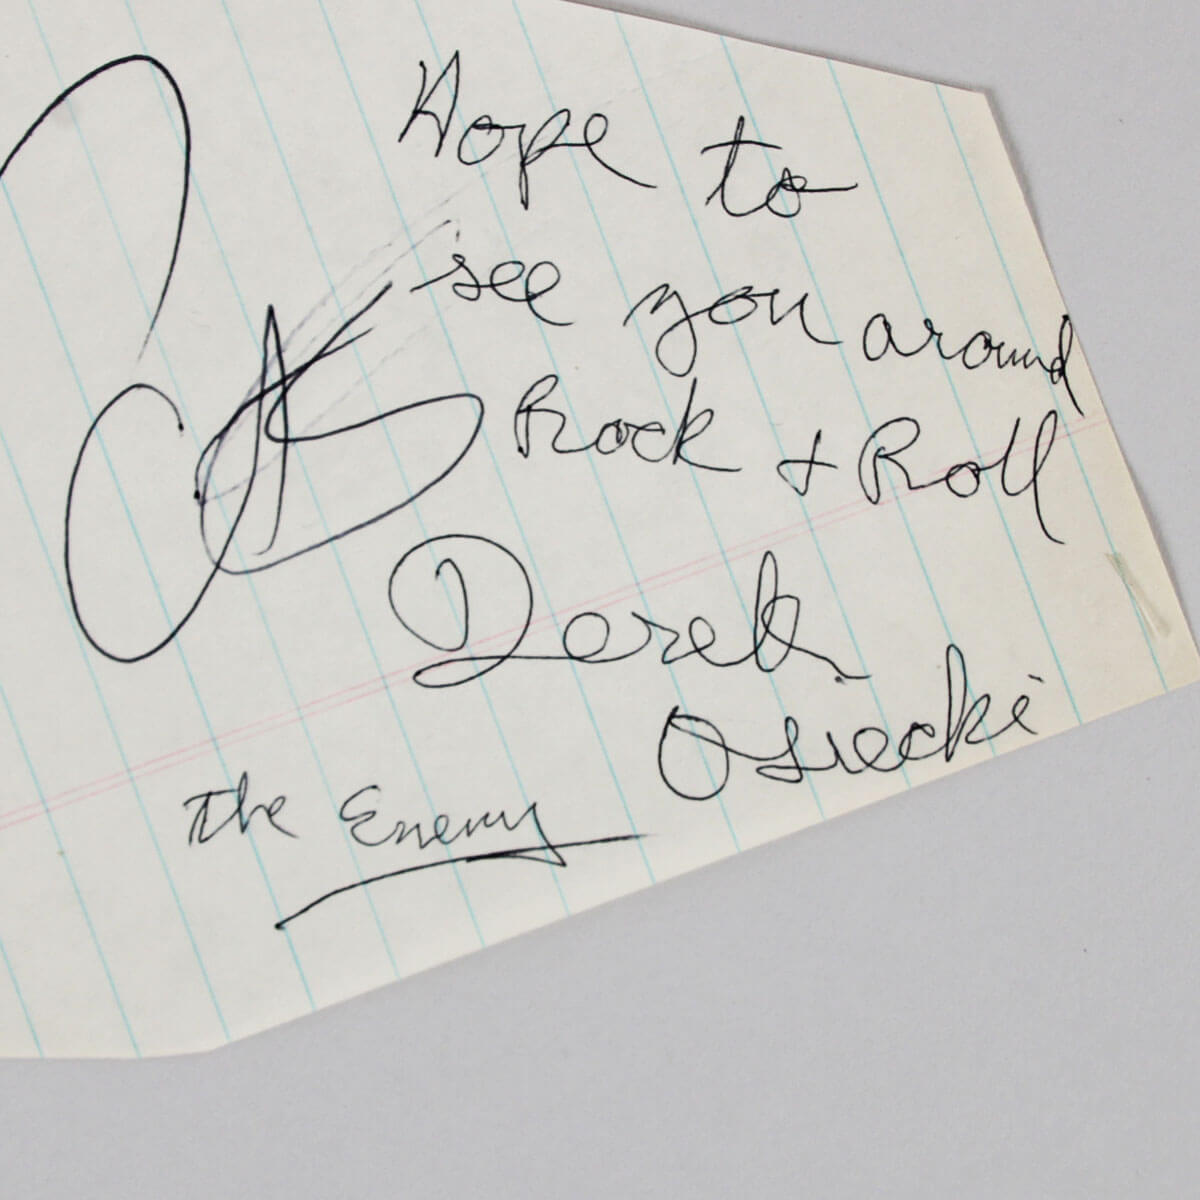 Hope to
see you around
Rock + Roll
Derek
Osiecki
The Enemy